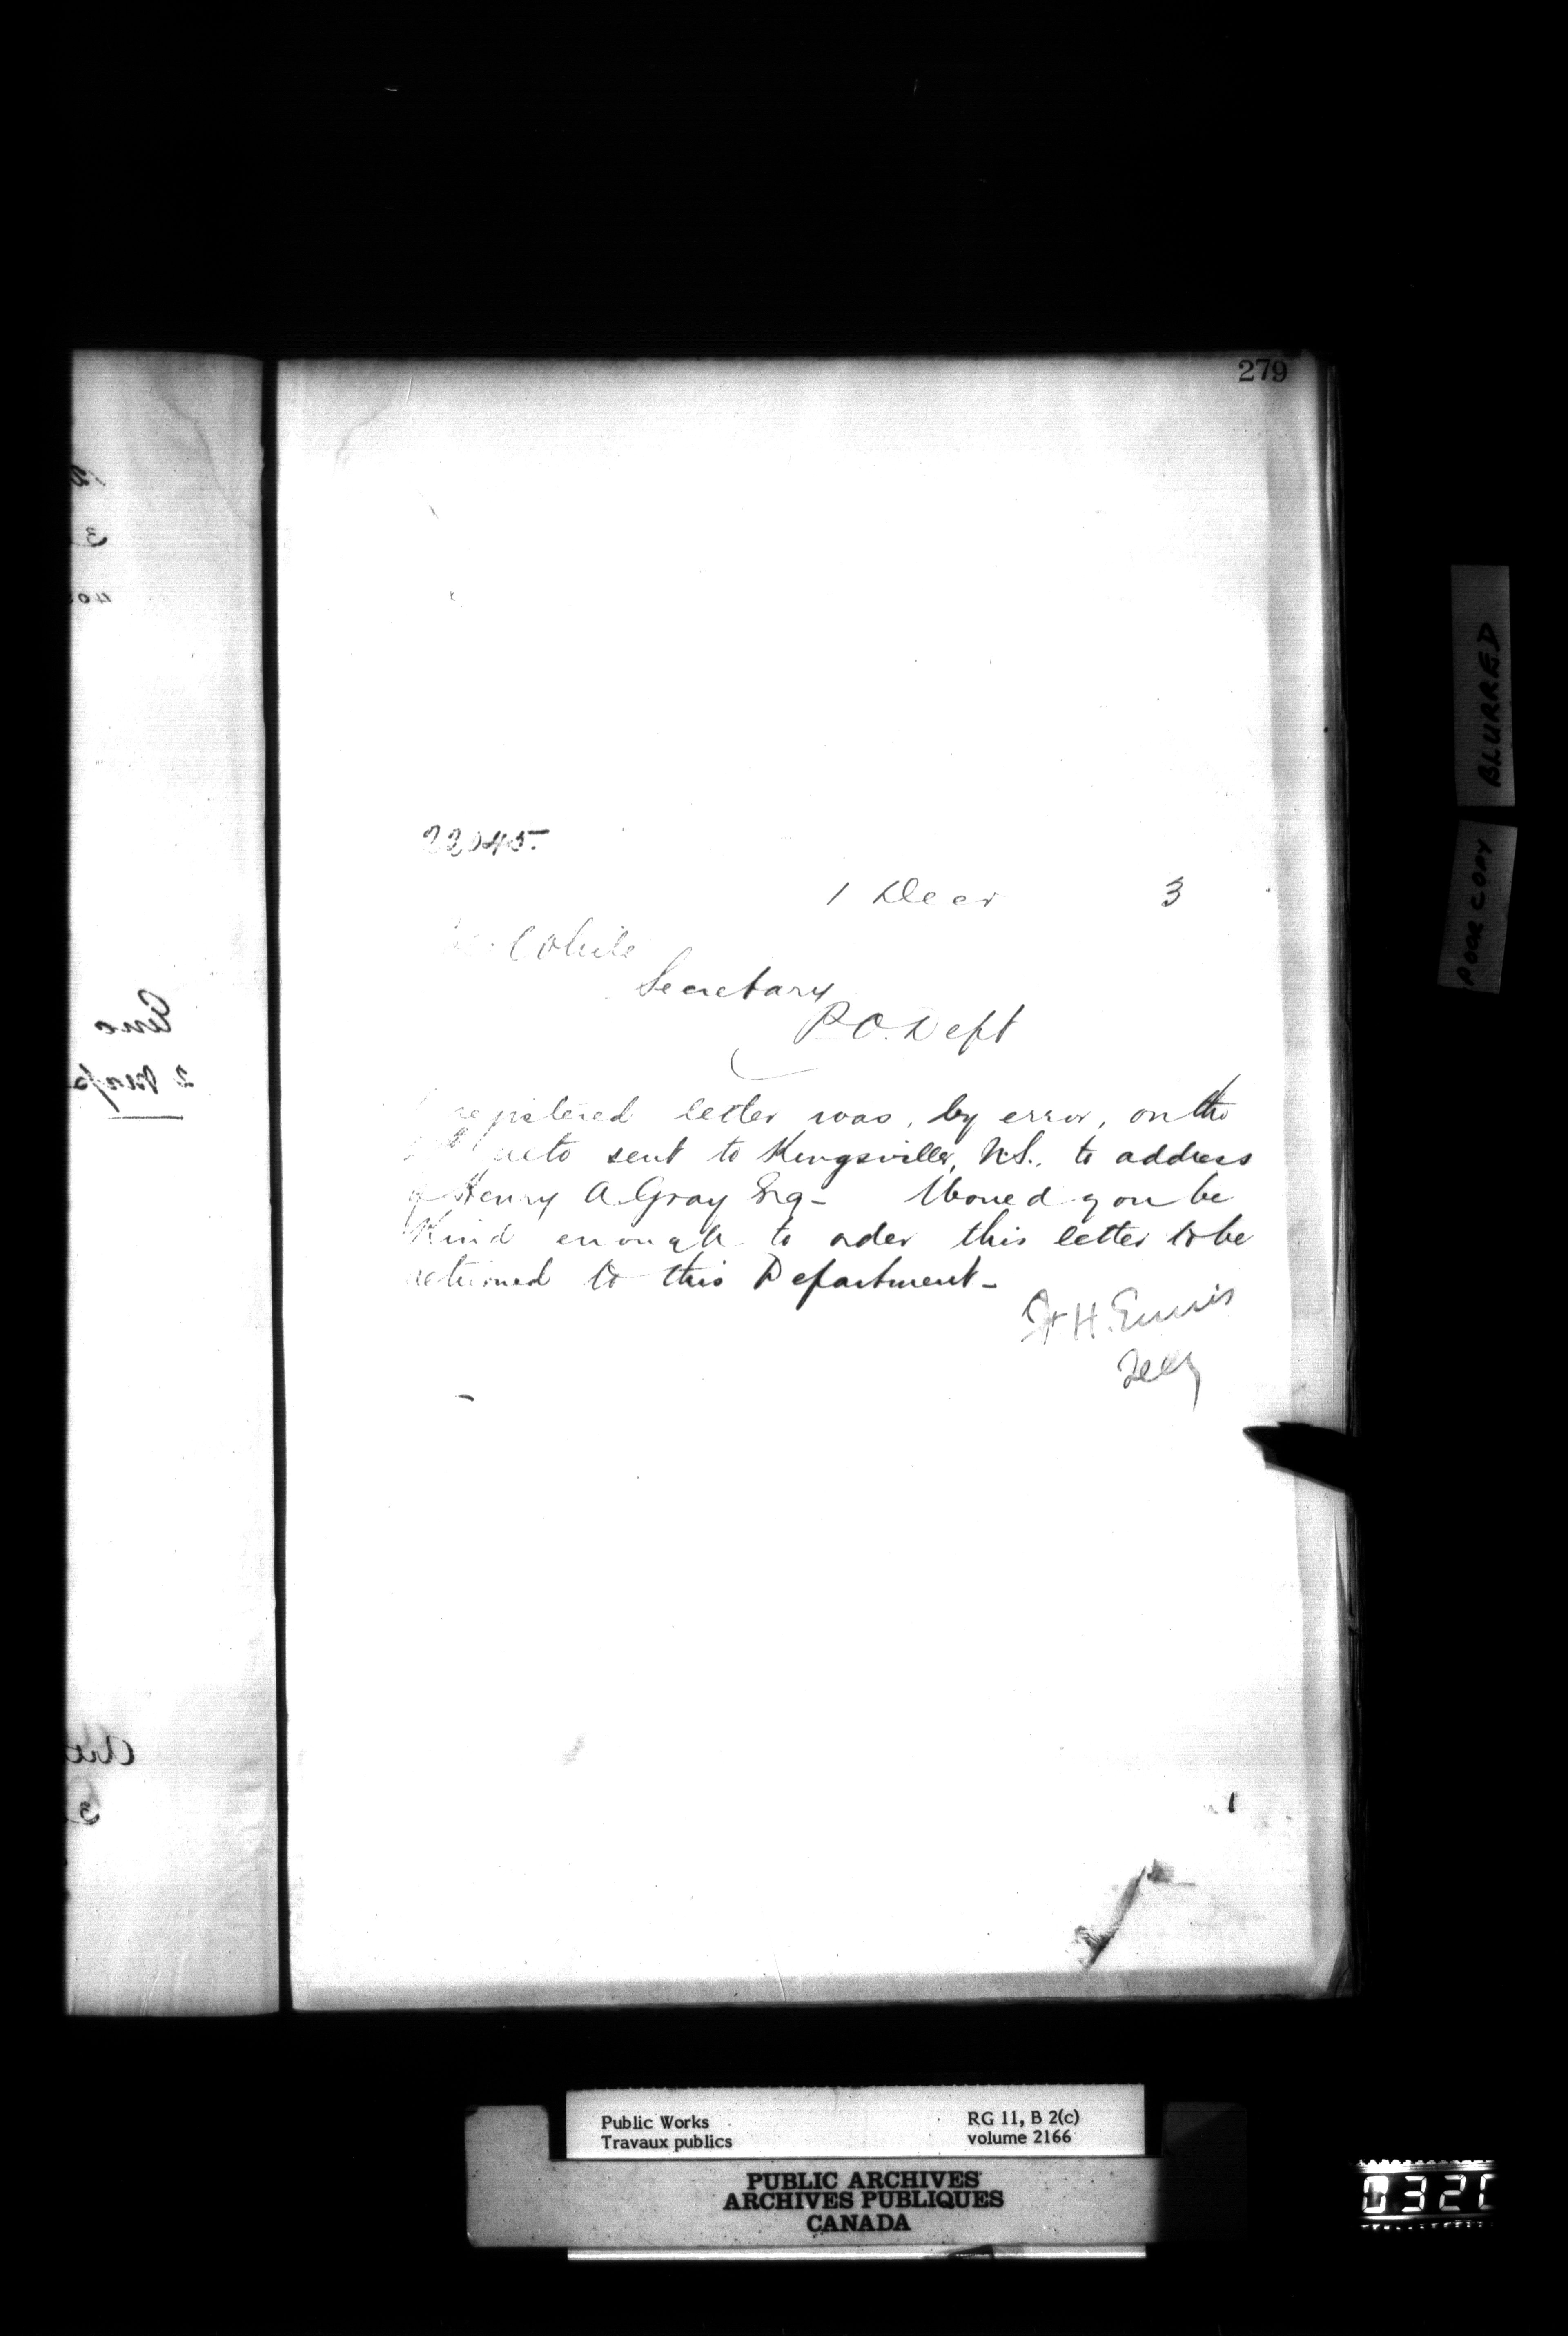 279
22045.
1 Decr 3
White
Secretary
P.O. Dept
registered letter was, by error, on the
sent to Kingsville, N.S. to address
of Henry A. Gray Esq - Would you be
kind enough to order this letter to be
returned to this Department -
F H. Ennis
Secy
BLURRED
POOR COPY
Public Works
Travaux publics
RG 11, B 2(c)
volume 2166
PUBLIC ARCHIVES
ARCHIVES PUBLIQUES
CANADA